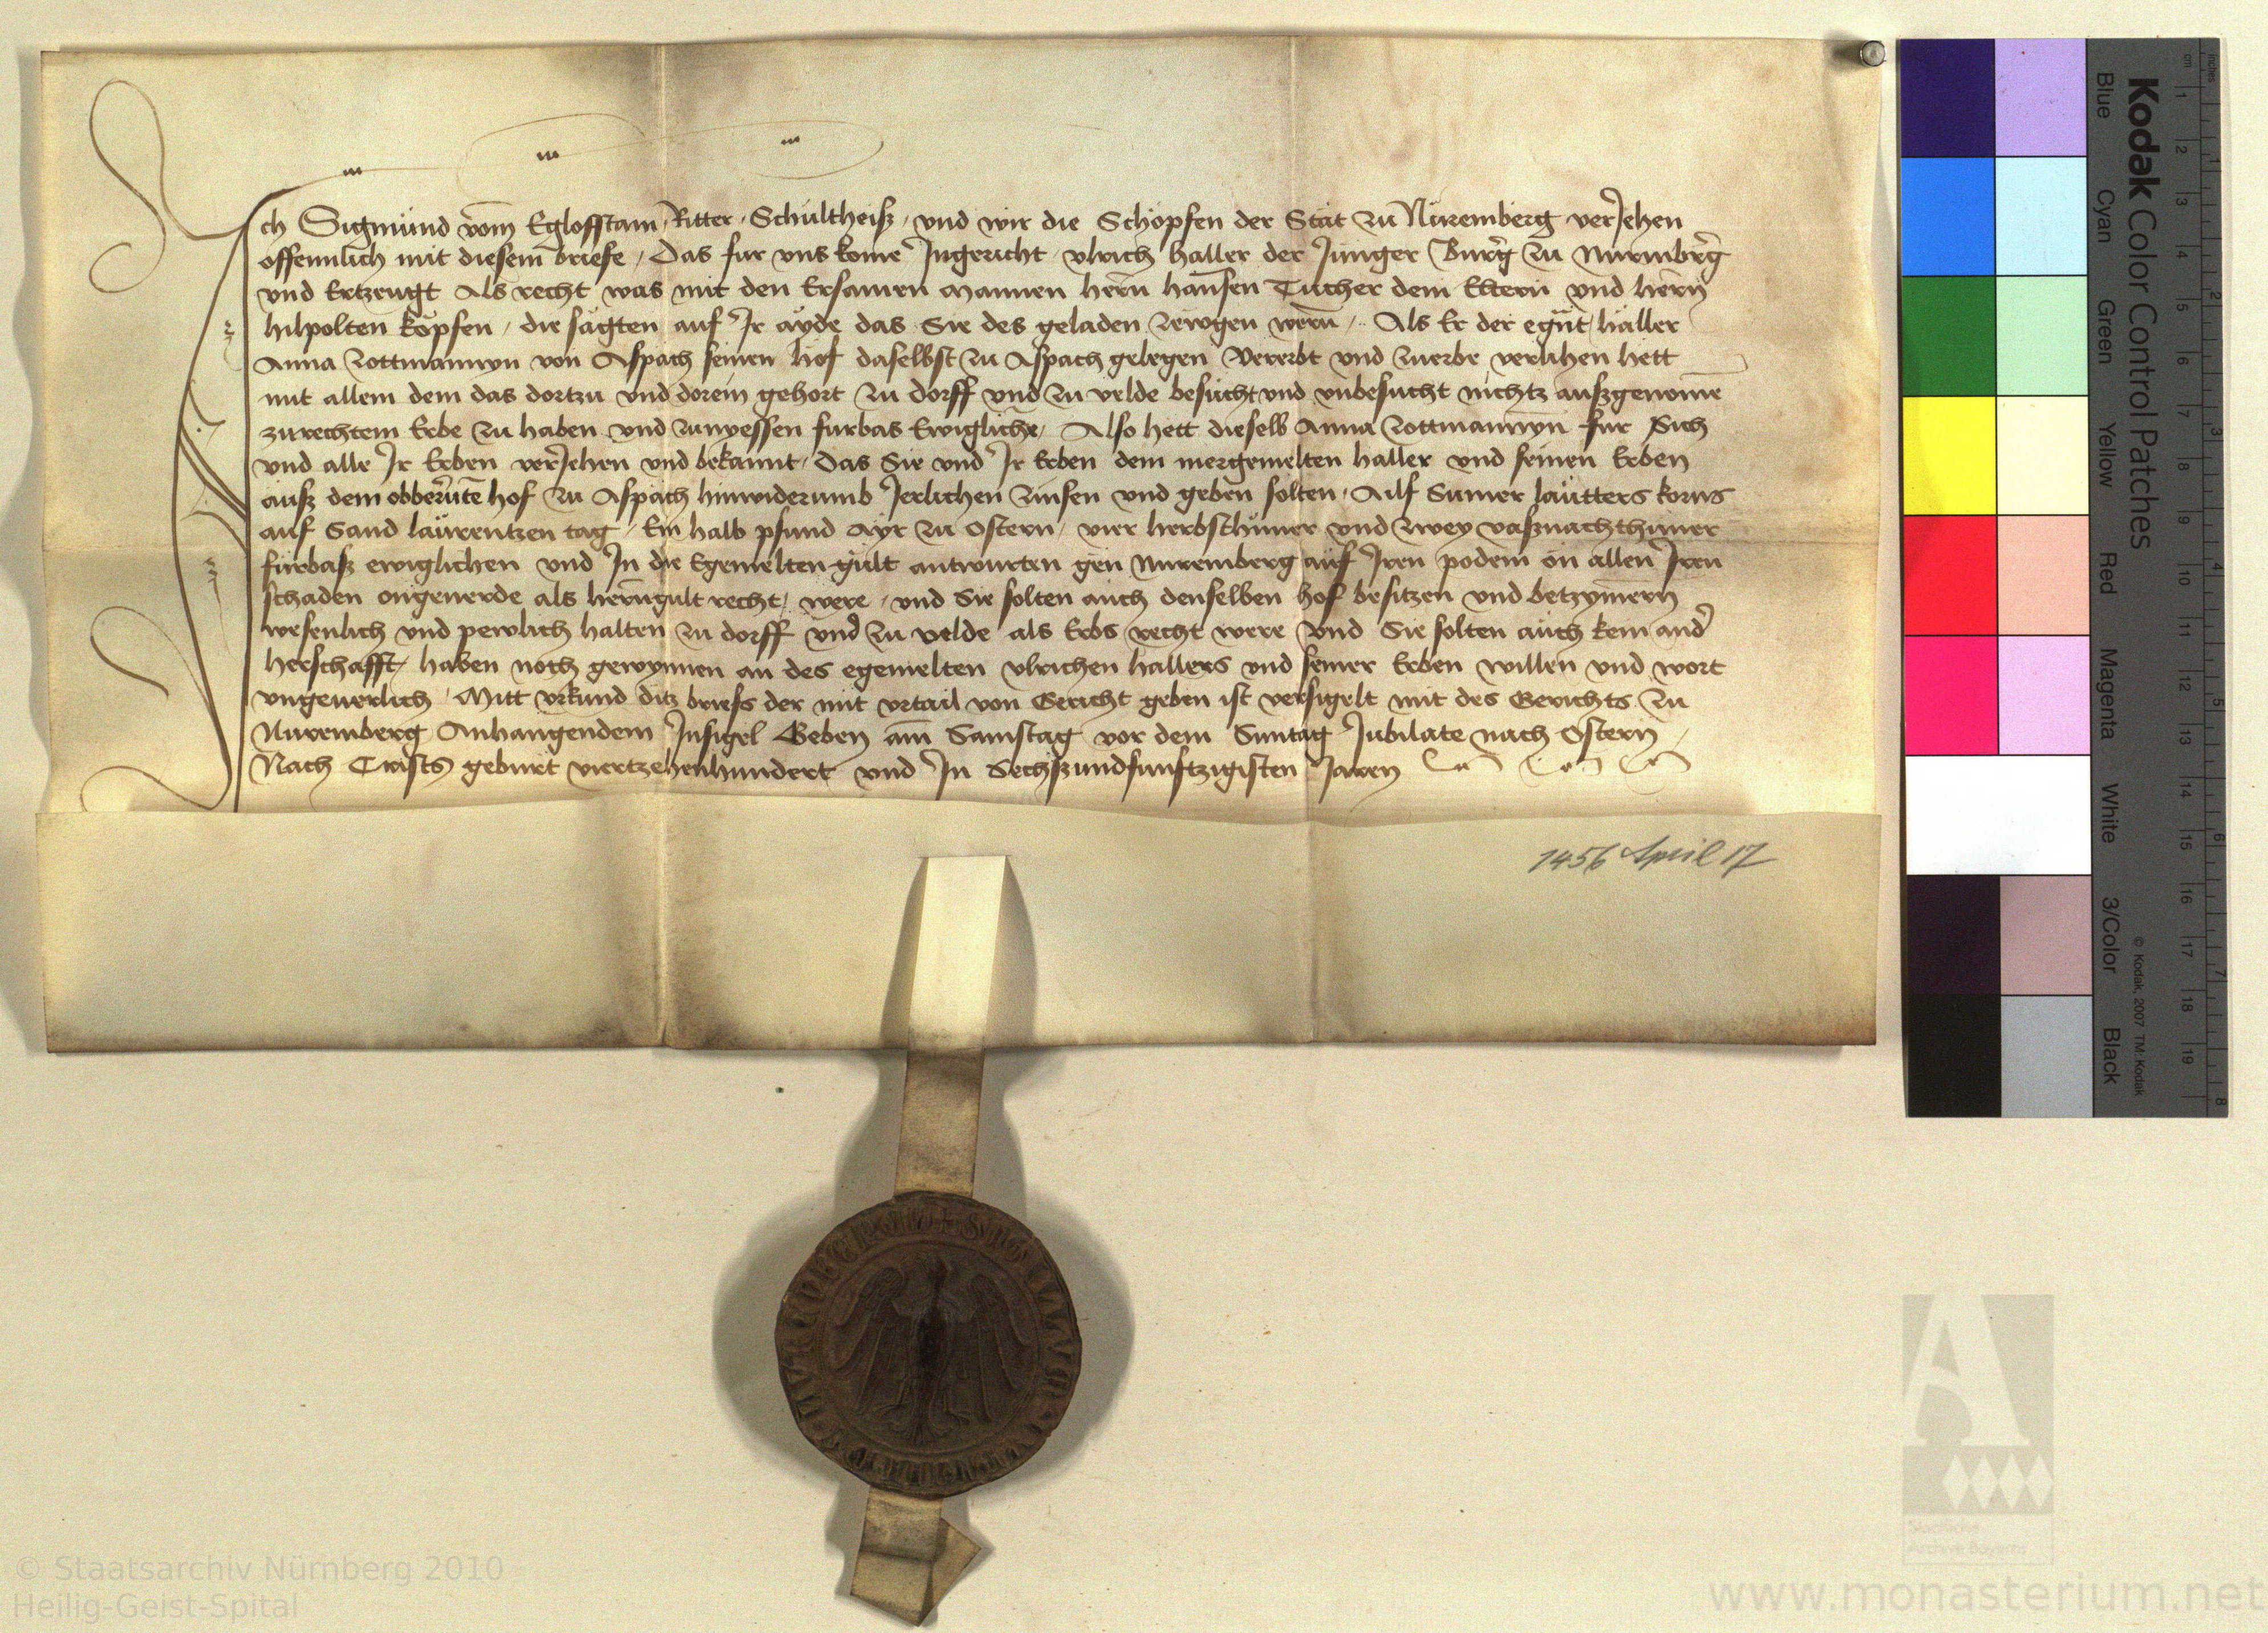 Ich Sigmund vom Eglofstain Ritter Schultheiß und wir die Schopfen der Stat zu Nuremberg verJehen
offennlich mit diesem briefe / Das fur uns kome Ingericht Ulrich haller der Junger Burg zu Nurmbrg
und Ertzeugt Als recht was mit den Ersamen mannen hern hansen Tucher dem Eltern und hern
hilpolten kopfen / die sagten auf Ir ayde das Sie des geladen zewgen wern / Als Er der egnt haller
Anna Zottmannyn von Aspach seinen hof daselbst zu Aspach gelegen Vererbt und zuerbe verlihen hett
mit allem dem das dortzu und dorein gehort zu dorff und zu velde besucht und unbesucht nichtz außgenome
zurechtem Erbe zu haben und zunyessen furbas Ewigliche / Also hett dieselb Anna Zottmannyn fur Sich
und alle Ir Erben verJehen und bekannt / Das Sie und Ir Erben dem mergemelten haller und seinen Erben
auß dem obberute hof zu Aspach hinwiderumb Jerlichen zinsen und geben solten / Ailf Sumer lautters korns
auf Sand laurentzen tag / Ein halb pfund Ayr zu Ostern / vier herbsthuner und zwey vaßnachthuner
furbaß ewiglichen und In die Egemelten gult antwurten gen Nuremberg auf Iren podem on allen Iren
schaden ongeuerde als herngult recht were / und Sie solten auch denselben hof besitzen und betzymern
wesenlich und pewlich halten zu dorff und zu velde als Erbs recht were Und Sie solten auch kein and
herschafft / haben noch gewynnen an des egemelten Ulrichen hallers und seiner Erben willen und wort
ungeuerlich / Mitt urkund ditz briefs der mit urtail von Gericht geben ist versigelt mit des Gerichts zu
Nuremberg Anhangendem Insigel Geben am Samstag vor dem Suntag Jubilate nach Ostern
Nach Crists geburt viertzehenhundert und In Sechßundfunftzigisten Jaren
1456 April 17
Kodak Color Control Patches
Blue Cyan Green Yellow Red Magenta White 3/Color Black
© Kodak, 2007 TM: Kodak
cm 1 2 3 4 5 6 7 8 9 10 11 12 13 14 15 16 17 18 19
inches 1 2 3 4 5 6 7 8
Staatliche
Archive Bayerns
© Staatsarchiv Nürnberg 2010
Heilig-Geist-Spital
www.monasterium.net